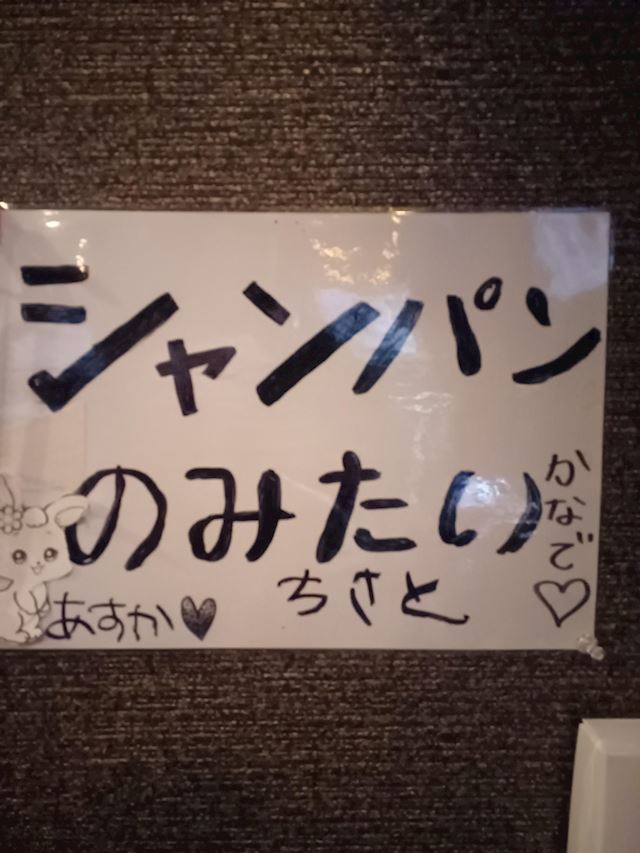 シャンパン
のみたい
かなで♡
ちさと
あすか♥